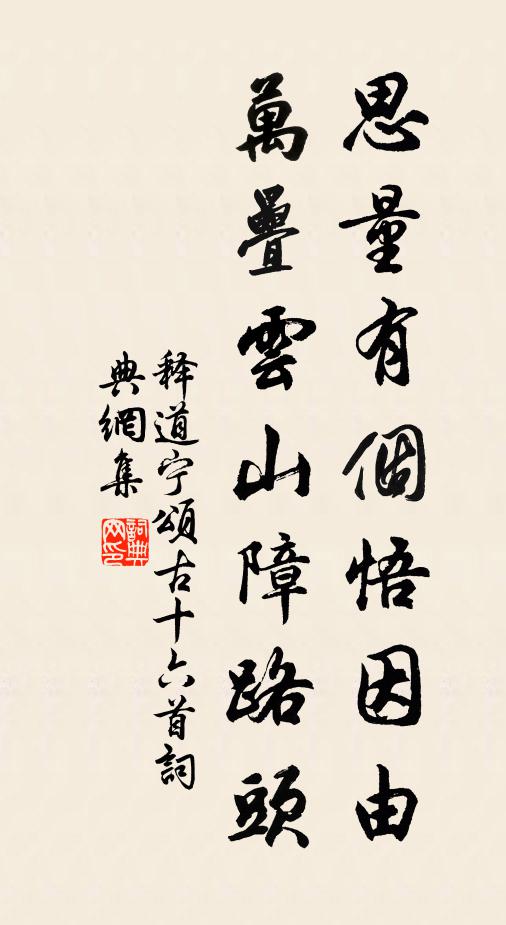 思量有個悟因由
萬疊雲山障路頭
释道宁頌古十六首詞
典網集
詞典网印